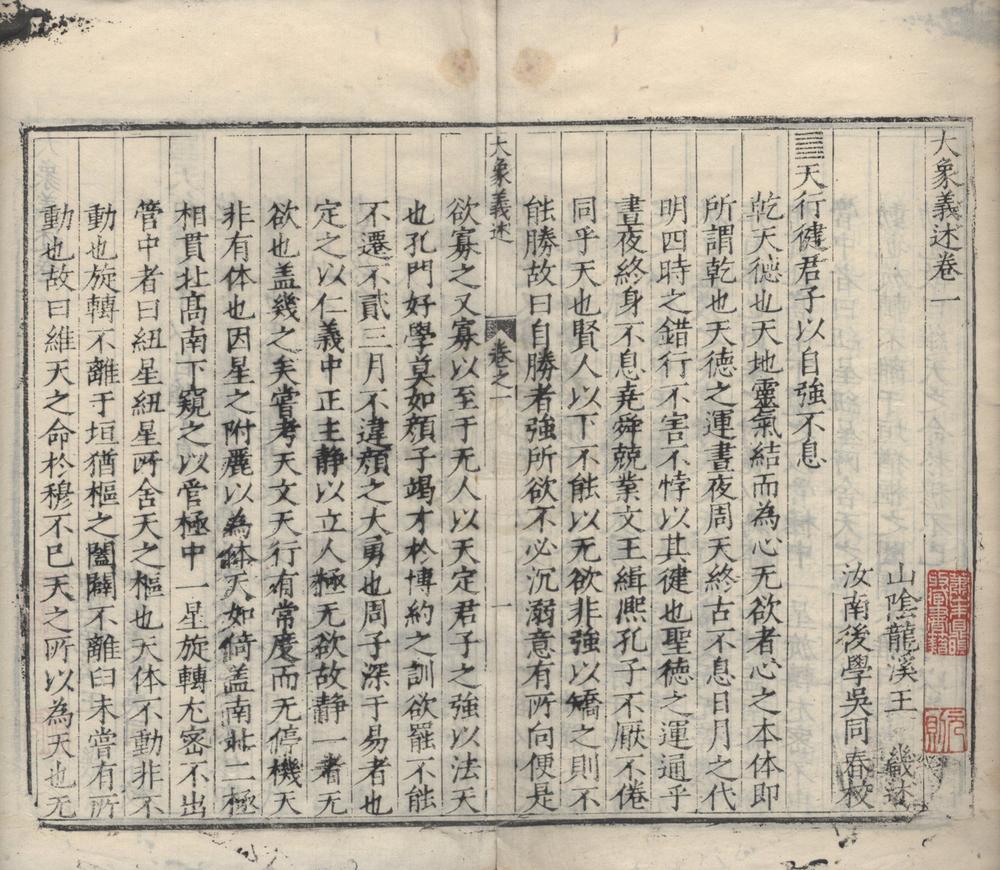 大象義述卷一
山陰龍溪王畿述
汝南後學吳同春校
䷀天行健君子以自強不息
乾天德也天地靈氣結而為心无欲者心之本体即
所謂乾也天德之運晝夜周天終古不息日月之代
明四時之錯行不害不悖以其健也聖德之運通乎
晝夜終身不息堯舜兢業文王緝熙孔子不厭不倦
同乎天也賢人以下不能以无欲非強以矯之則不
能勝故曰自勝者強所欲不必沉溺意有所向便是
大象義述 卷之一 一
欲寡之又寡以至于无人以天定君子之強以法天
也孔門好學莫如顏子竭才於博約之訓欲罷不能
不遷不貳三月不違顏之大勇也周子深于易者也
定之以仁義中正主静以立人極无欲故静一者无
欲也盖幾之矣嘗考天文天行有常度而无停機天
非有体也因星之附麗以為体天如倚盖南北二極
相貫北高南下窺之以管極中一星旋轉尤密不出
管中者曰紐星紐星所舍天之樞也天体不動非不
動也旋轉不離于垣猶樞之闔闢不離臼未嘗有所
動也故曰維天之命於穆不已天之所以為天也无